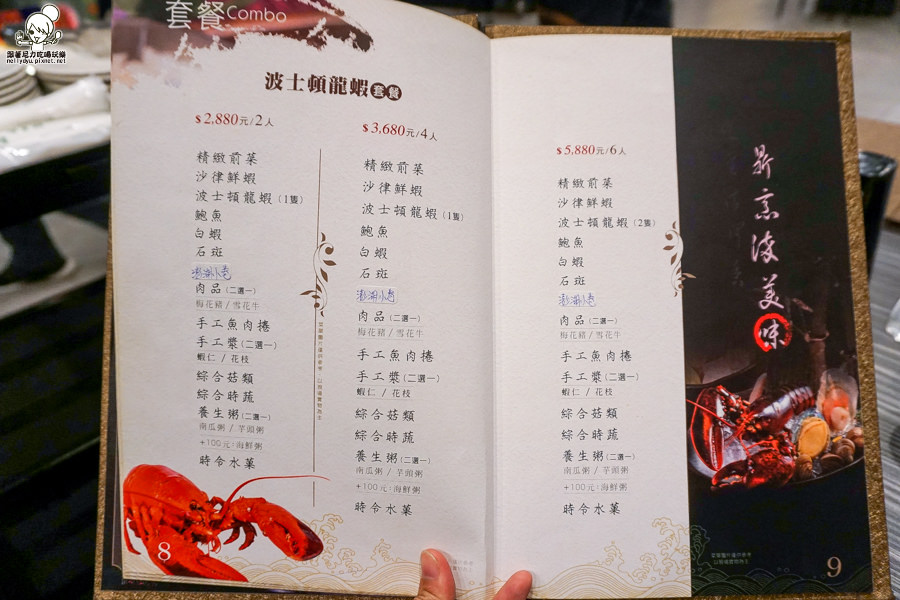 跟著尼力吃喝玩樂
nellydyu.pixnet.net
套餐Combo
波士頓龍蝦套餐
$2,880元/2人
精緻前菜
沙律鮮蝦
波士頓龍蝦(1隻)
鮑魚
白蝦
石斑
澎湖小卷
肉品(二選一)
梅花豬/雪花牛
手工魚肉捲
手工漿(二選一)
蝦仁/花枝
綜合菇類
綜合時蔬
養生粥(二選一)
南瓜粥/芋頭粥
+100元:海鮮粥
時令水菓
$3,680元/4人
精緻前菜
沙律鮮蝦
波士頓龍蝦(1隻)
鮑魚
白蝦
石斑
澎湖小卷
肉品(二選一)
梅花豬/雪花牛
手工魚肉捲
手工漿(二選一)
蝦仁/花枝
綜合菇類
綜合時蔬
養生粥(二選一)
南瓜粥/芋頭粥
+100元:海鮮粥
時令水菓
8
$5,880元/6人
精緻前菜
沙律鮮蝦
波士頓龍蝦(2隻)
鮑魚
白蝦
石斑
澎湖小卷
肉品(二選一)
梅花豬/雪花牛
手工魚肉捲
手工漿(二選一)
蝦仁/花枝
綜合菇類
綜合時蔬
養生粥(二選一)
南瓜粥/芋頭粥
+100元:海鮮粥
時令水菓
鼎烹海美味
9